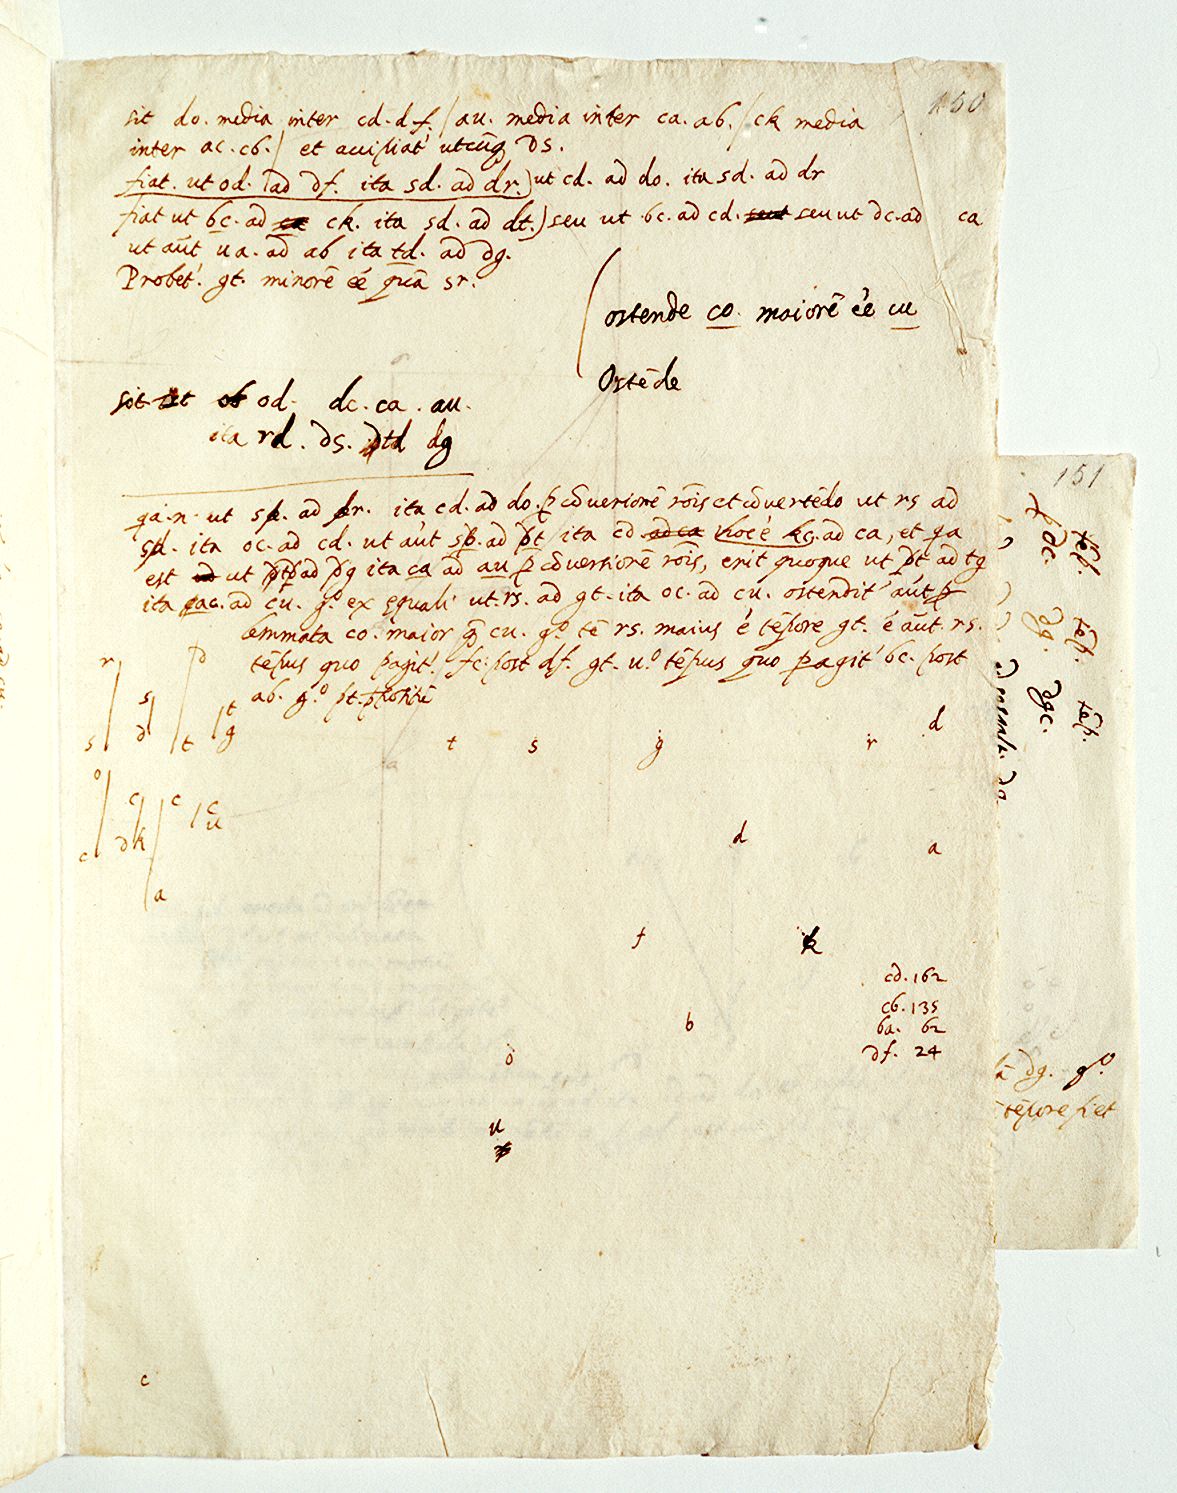 150
sit do. media inter cd. df. / au. media inter ca. ab. / ck media
inter ac. cb. / et accipiat' utcūq ds.
fiat. ut od. ad df. ita sd. ad dr.) ut cd. ad do. ita sd. ad dr
fiat ut bc. ad ca ck. ita sd. ad dt.) seu ut bc. ad cd. seu ut dc. ad ca
ut aūt ua. ad ab ita td. ad dg.
Probet'. gt. minorē eē quā sr.
ostende co. maiorē eē cu
Ostēde
sit ut ob od. dc. ca. au.
ita rd. ds. td dg
qa. n. ut sd. ad dr. ita cd. ad do. p cōversionē rōis et cōvertēdo ut rs ad
sd. ita oc. ad cd. ut aūt sd. ad dt / ita cd ad ca hoc é kc. ad ca, et qa
est ad ut dt ad dg ita ca ad au p cōversionē rōis, erit quoque ut dt ad tg
ita ac. ad cu. g.º ex equali ut. rs. ad gt. ita oc. ad cu. ostendit' aūt p
lemmata co. maior q̄ cu. g.º tē rs. maius é tēpore gt. é aūt. rs.
tēpus quo pagit'. fc. post df. gt. u.º tēpus quo pagit' bc. post
ab. g.º pt.
r d
s t
s d t g
t s g r d
o
c c c
d k u
c
a
d
a
f
k
cd. 162
cb. 135
ba. 62
df. 24
b
o
u
c
151
dc.
tēp.
dg.
tēp.
dgc.
tēp.
dg. g.º
tēpore fiet